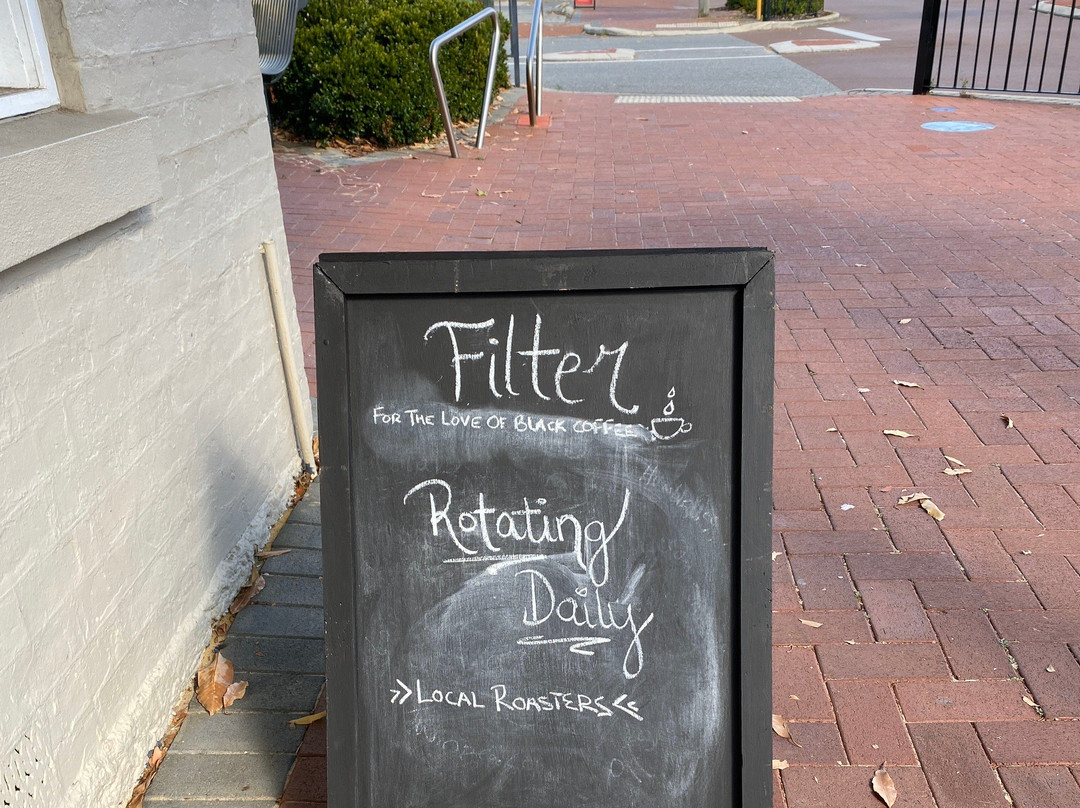 Filter
FOR THE LOVE OF BLACK COFFEE
Rotating
Daily
>> LOCAL ROASTERS <<